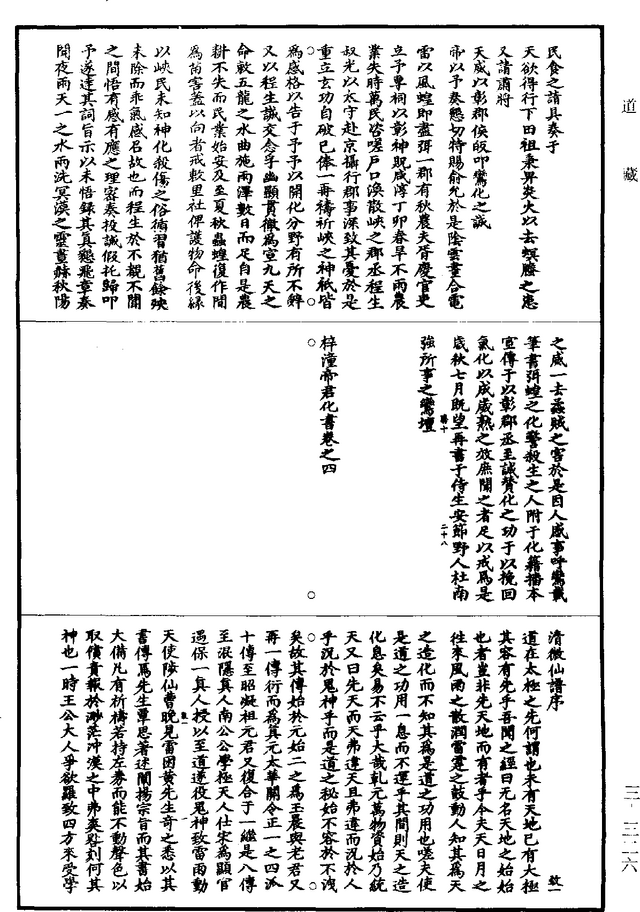 道藏
民食之請具奏于
天欲得行下田祖秉畀炎火以去螟螣之患
又請蕭將
天威以彰郡侯皈叩鸞化之誠
帝以予奏懇切特賜俞允於是陰雲晝合電
雷以風蝗即盡弭一郡有秋農夫胥慶官吏
立予專祠以彰神貺咸淳丁卯春旱不雨農
業失時萬民咨嗟戶口渙散峽之郡丞程生
叔光以太守赴京攝行郡事深致其憂於是
重立玄功自破己俸一再禱祈峽之神祇皆
為感格以告于予予以開化分野有所不辭
又以程生誠交念孚幽顯貫徹為宣九天之
命敕五龍之水曲施雨澤數日而足自是農
耕不失而民業始安及至夏秋蟲蝗復作間
為苗害蓋以向者戒敕里社俾護物命後緣
以峽民未知神化殺傷之俗循習猶舊餘殃
未除而乖氣感召故也而程生於不覩不聞
之間悟有感有應之理密奏投誠假托歸叩
予遂達其詞旨示以未悟錄其真懇飛章奏
聞夜兩天一之水雨洗冥漠之靈晝赫秋陽
之威一去蟊賊之害於是因人感事呼鸞載
筆書弭蝗之化警殺生之人附于化籍播本
宣傳于以彰郡丞至誠贊化之功于以挽回
氣化以成歲熟之效庶聞之者足以戒焉是
歲秋七月既望再書于侍生安節野人杜南
強所事之鸞壇
梓潼帝君化書卷之四
二十八
清微仙譜序
道在太極之先何謂也未有天地已有太極
其容有先乎吾聞之經曰無名天地之始始
也者豈非先天地而有者乎今夫天日月之
往來風雨之散潤雷霆之鼓動人知其為天
之造化而不知其為是道之功用也嗟夫使
是道之功用一息而不運乎其間則天之造
化息矣易不云乎大哉乾元萬物資始乃統
天又曰先天而天弗違天且弗違而況於人
乎況於鬼神乎而是道之秘始不容於不洩
矣故其傳始於元始二之為玉晨與老君又
再一傳衍而為真元太華關令正一之四派
十傳至昭凝祖元君又復合于一繼是八傳
至混隱真人南公公學極天人仕宋為顯官
遇保一真人授以至道遂役鬼神致雷雨動
天使陟仙曹晚見雷困黃先生奇之悉以其
書傳焉先生覃思著述闡揚宗旨而其書始
大備凡有祈禱若持左券而能不動聲色以
取償責報於渺茫沖漠之中弗爽刻何其
神也一時王公大人爭欲羅致四方來受學
三一三二六